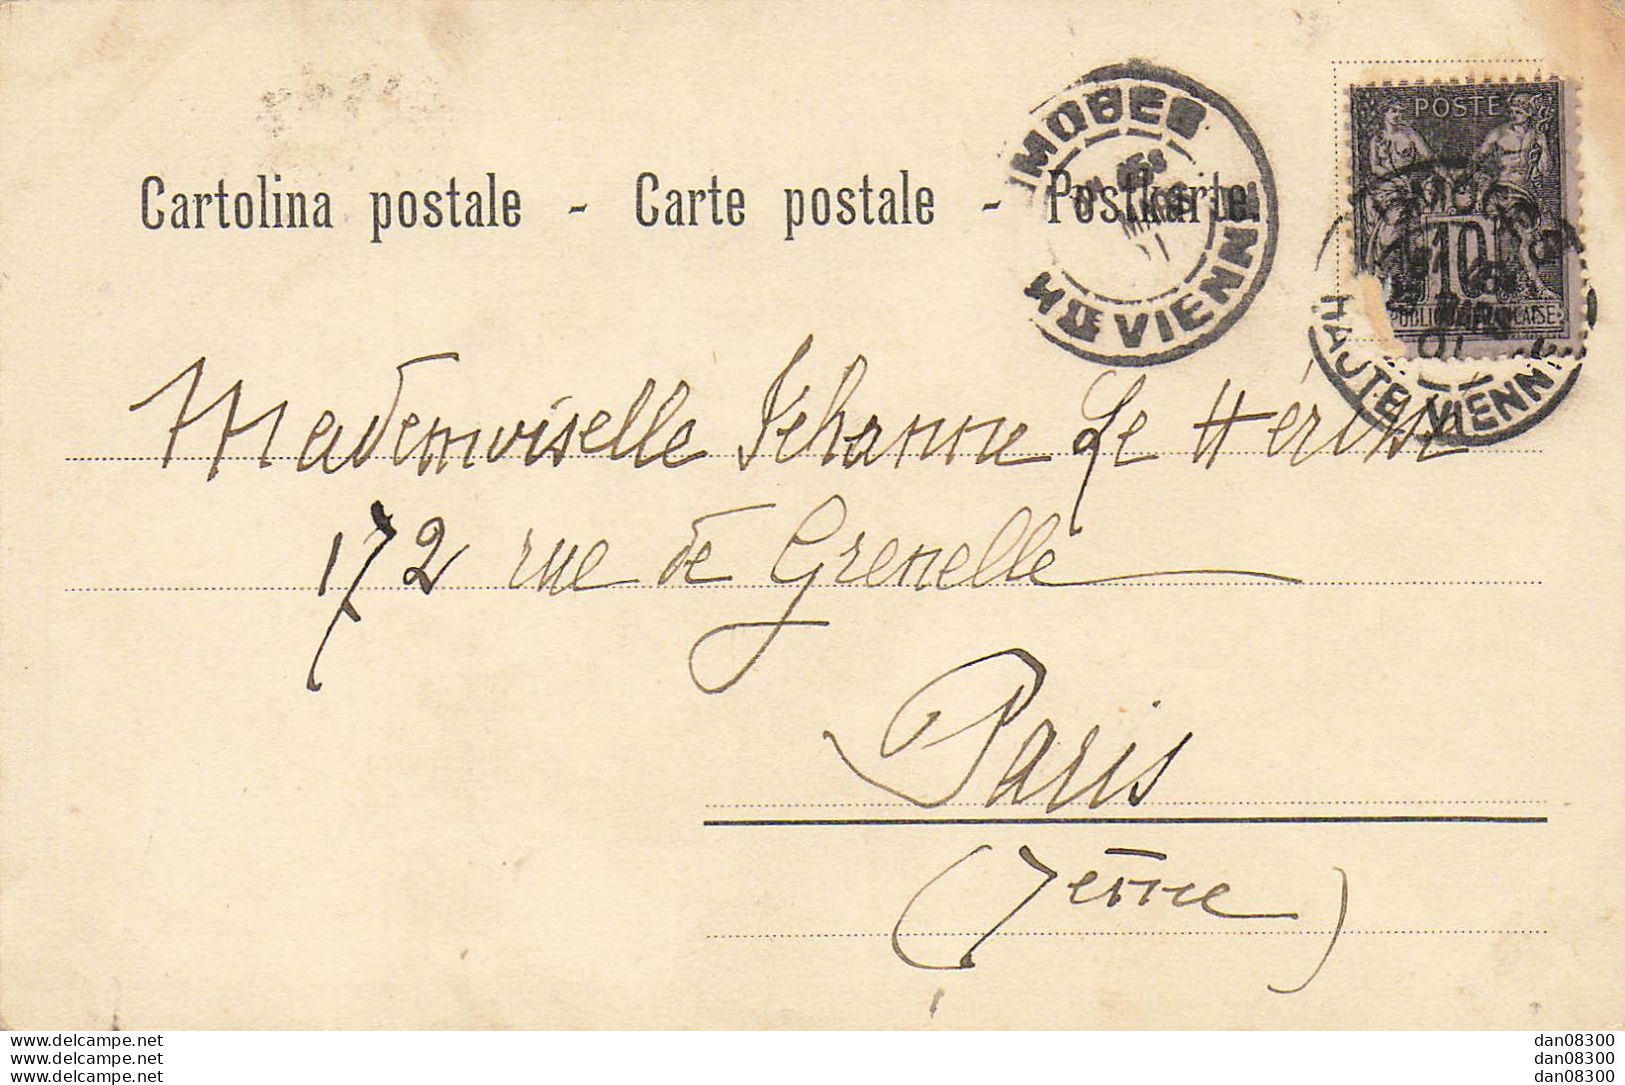 Cartolina postale - Carte postale - Postkarte
POSTE
10
HTE VIENNE
MARS
HAUTE-VIENNE
MARS
01
Mademoiselle Jehanne Le Hérissé
172 rue de Grenelle
Paris
(7eme)
www.delcampe.net
www.delcampe.net
www.delcampe.net
dan08300
dan08300
dan08300